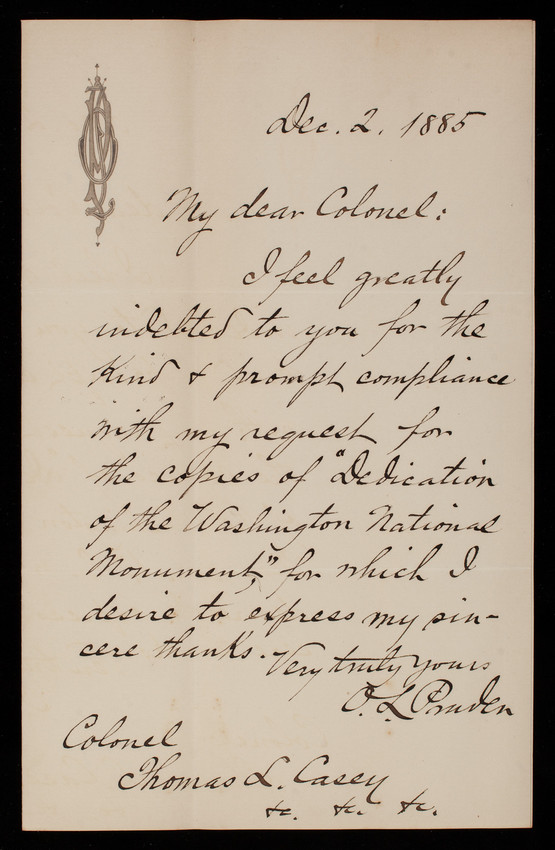 Dec. 2. 1885
My dear Colonel:
I feel greatly
indebted to you for the
kind & prompt compliance
with my request for
the copies of "Dedication
of the Washington National
Monument," for which I
desire to express my sin-
cere thanks.
Very truly yours
O. L. Pruden
Colonel
Thomas L. Casey
&c. &c. &c.